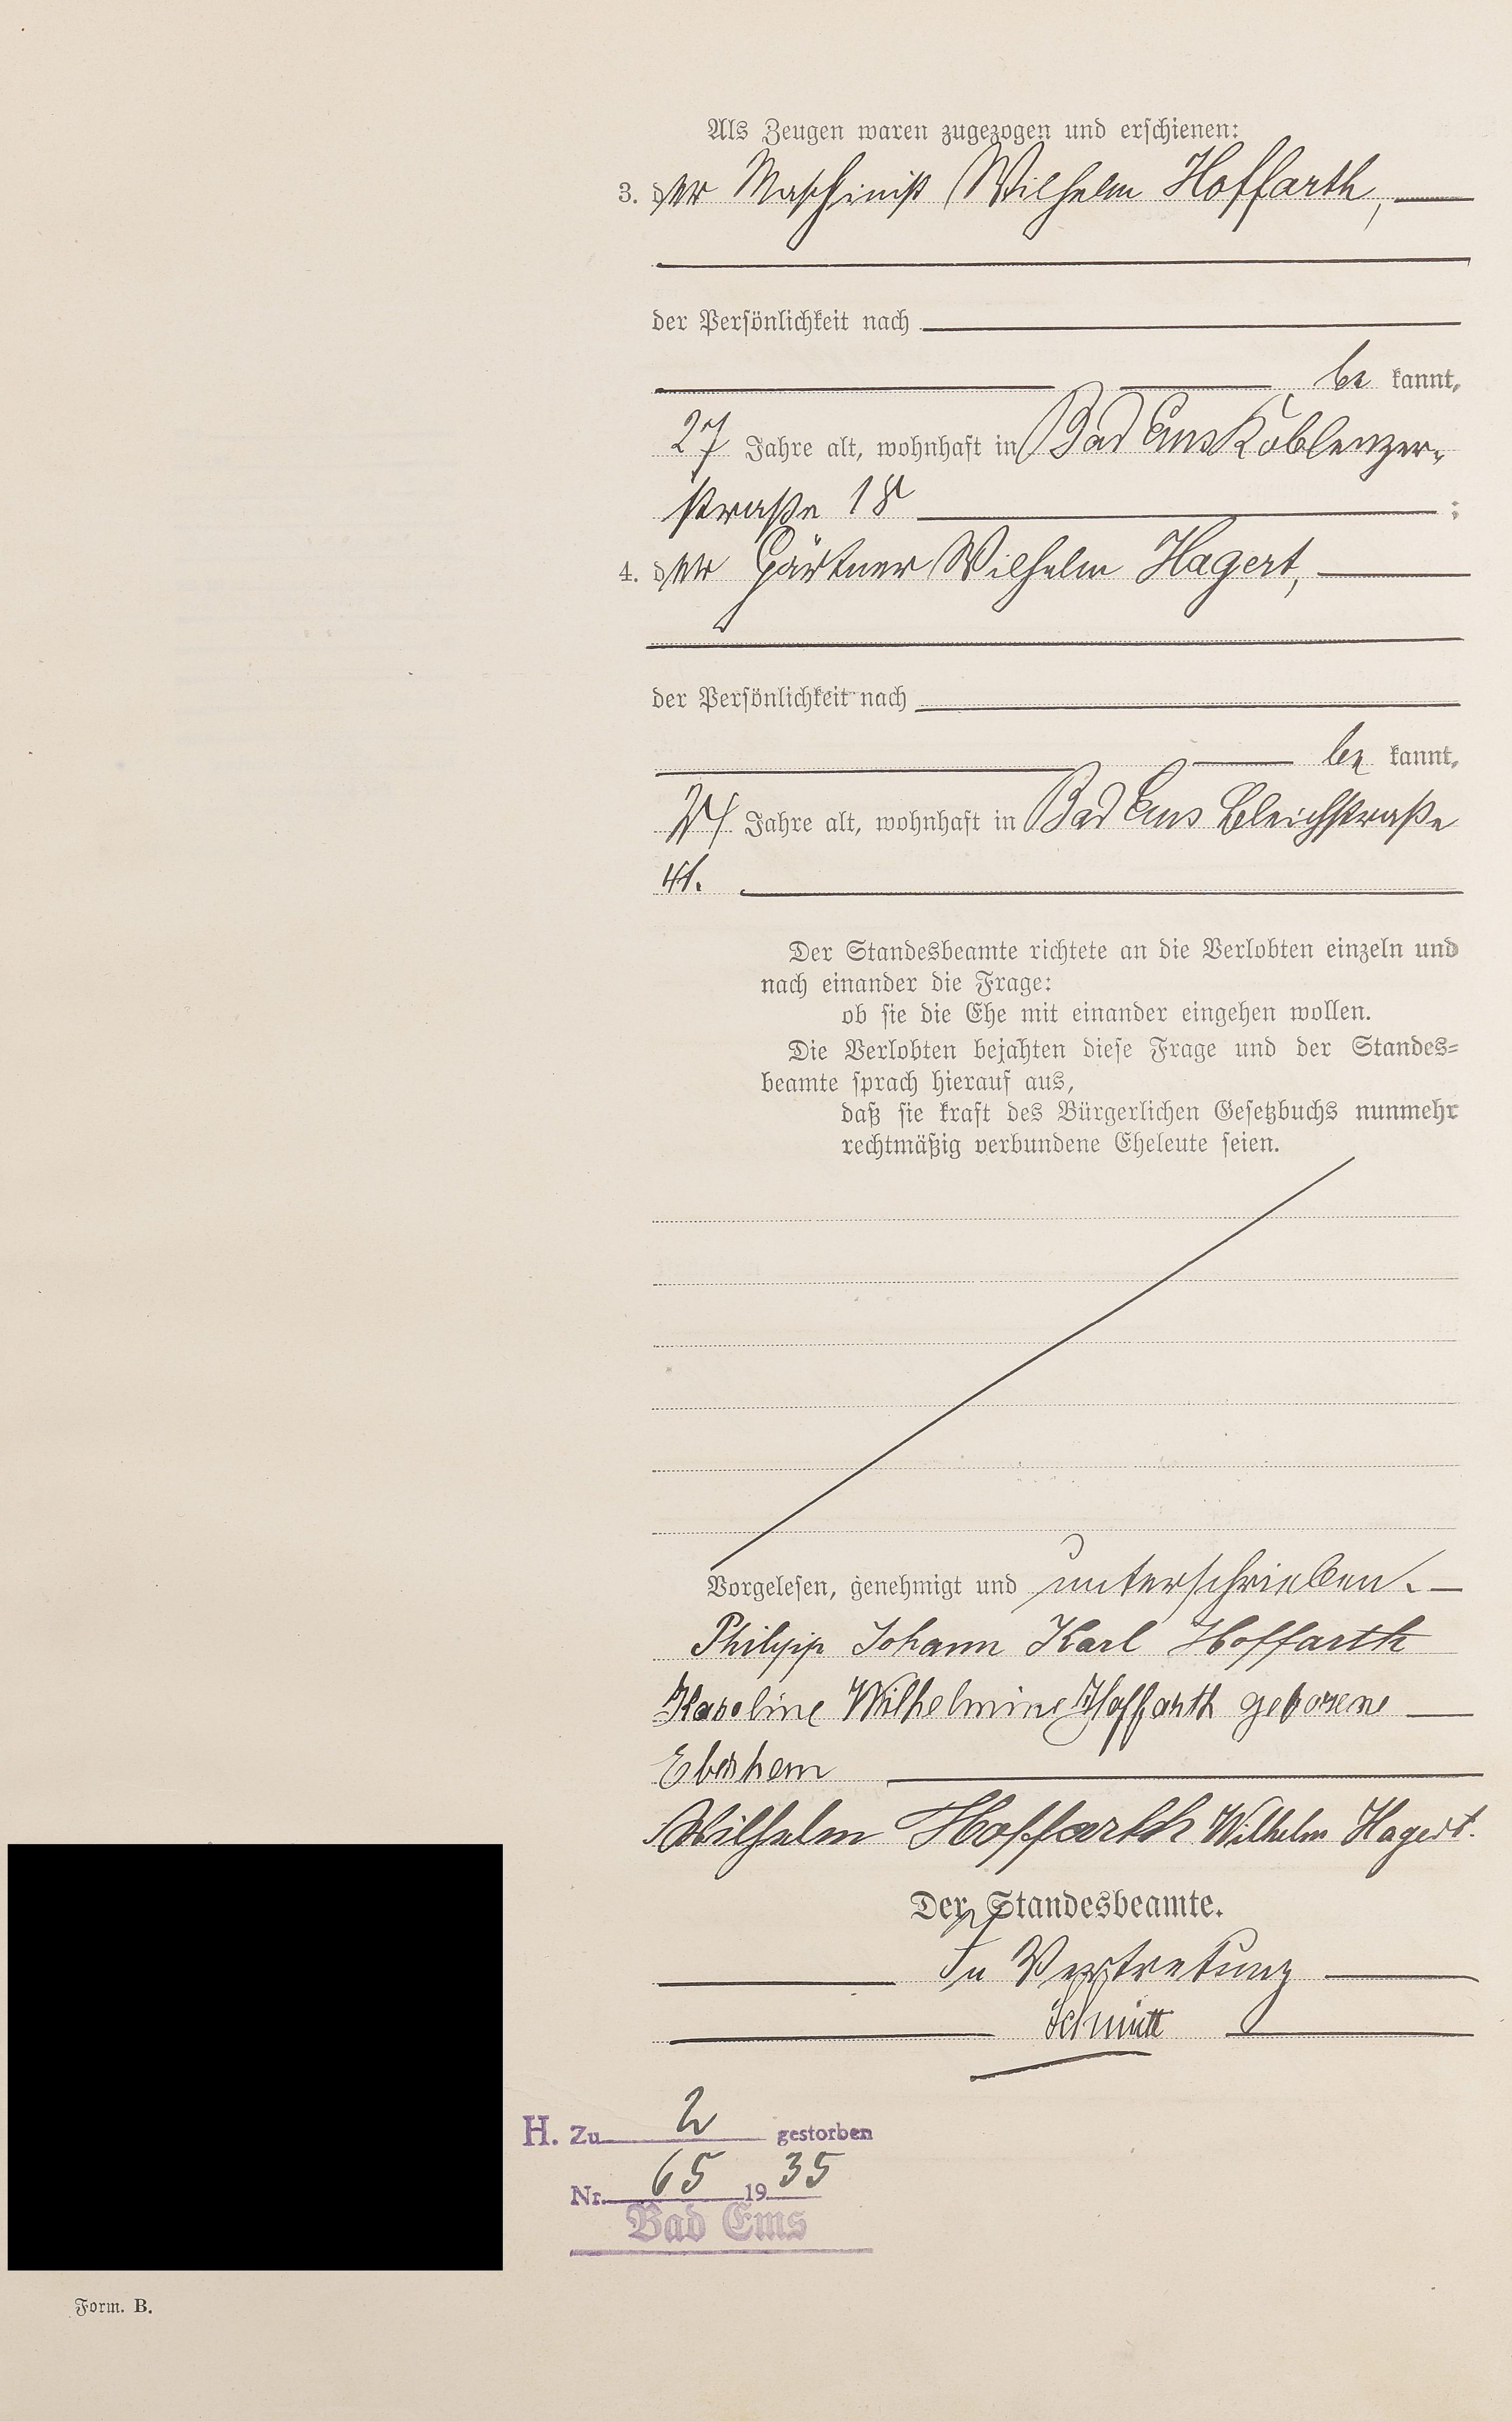 Als Zeugen waren zugezogen und erschienen:
3. der Maschinist Wilhelm Hoffarth,
der Persönlichkeit nach
be kannt,
27 Jahre alt, wohnhaft in Bad Ems Koblenzer-
straße 18 ;
4. der Gärtner Wilhelm Hagert,
der Persönlichkeit nach
be kannt,
24 Jahre alt, wohnhaft in Bad Ems Bleichstraße
41.
Der Standesbeamte richtete an die Verlobten einzeln und
nach einander die Frage:
ob sie die Ehe mit einander eingehen wollen.
Die Verlobten bejahten diese Frage und der Standes=
beamte sprach hierauf aus,
daß sie kraft des Bürgerlichen Gesetzbuchs nunmehr
rechtmäßig verbundene Eheleute seien.
Vorgelesen, genehmigt und unterschrieben.
Philipp Johann Karl Hoffarth
Karoline Wilhelmine Hoffarth geborene
Wilhelm Hoffarth Wilhelm Hagert.
Der Standesbeamte.
In Vertretung
Schmitt
H. Zu gestorben
Nr. 65 1935
Bad Ems
Form. B.